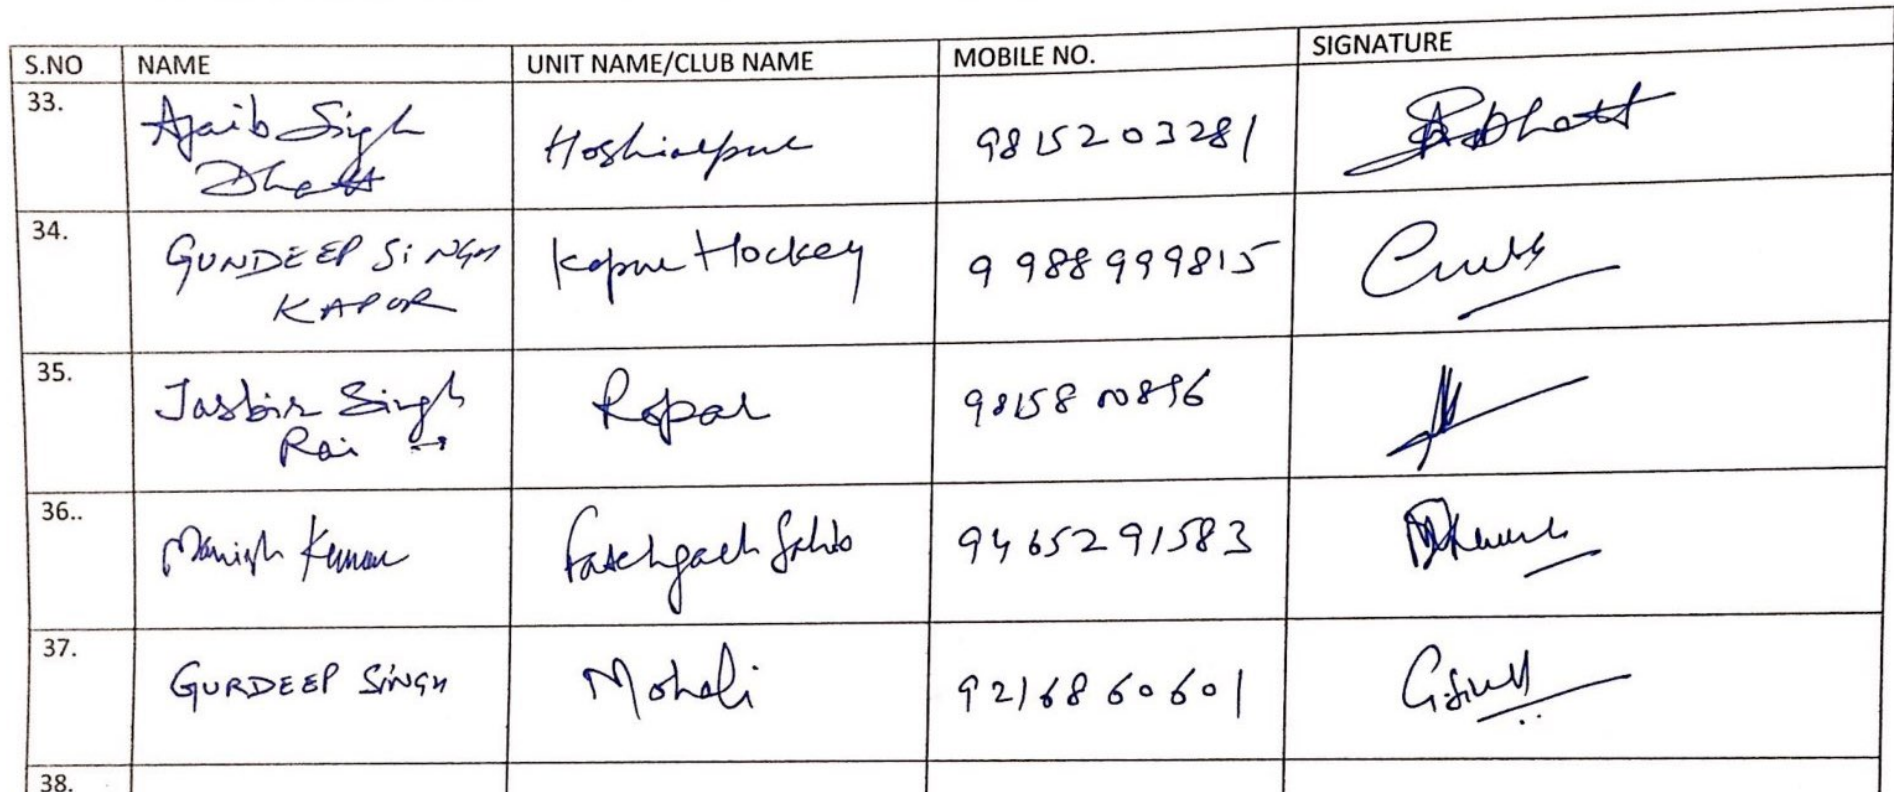 S.NO NAME UNIT NAME/CLUB NAME MOBILE NO. SIGNATURE
33. Ajaib Singh Hoshiarpur 9815203281
Dhatt
34. GUNDEEP SiNGH Kapur Hockey 9988999815
KAPOR
35. Jasbir Singh Ropar
Rai
36.. Manish Kumar Fatehgarh Sahib 9465291583
37. GURDEEP SiNGH Mohali 9216860601
38.